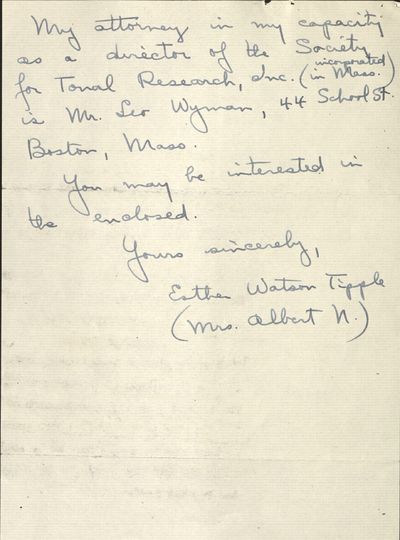 My attorney in my capacity
as a director of the Society
for Tonal Research, Inc. (incorporated in Mass.)
is Mr. Leo Wyman, 44 School St.
Boston, Mass.
You may be interested in
the enclosed.
Yours sincerely,
Esther Watson Tipple
(Mrs. Albert N.)